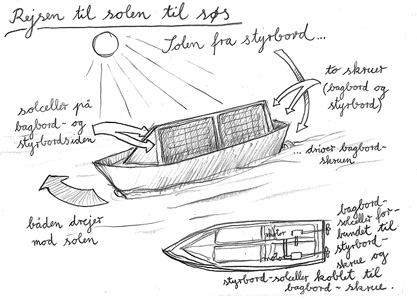 Rejsen til solen til søs
Solen fra styrbord...
to skruer
(bagbord og
styrbord)
solceller på
bagbord- og
styrbordsiden
... driver bagbord-
skruen
båden drejer
mod solen
bagbord-
solceller for-
bundet til
styrbord-
skrue og
styrbord-solceller koblet til
bagbord-skrue.
motor
motor